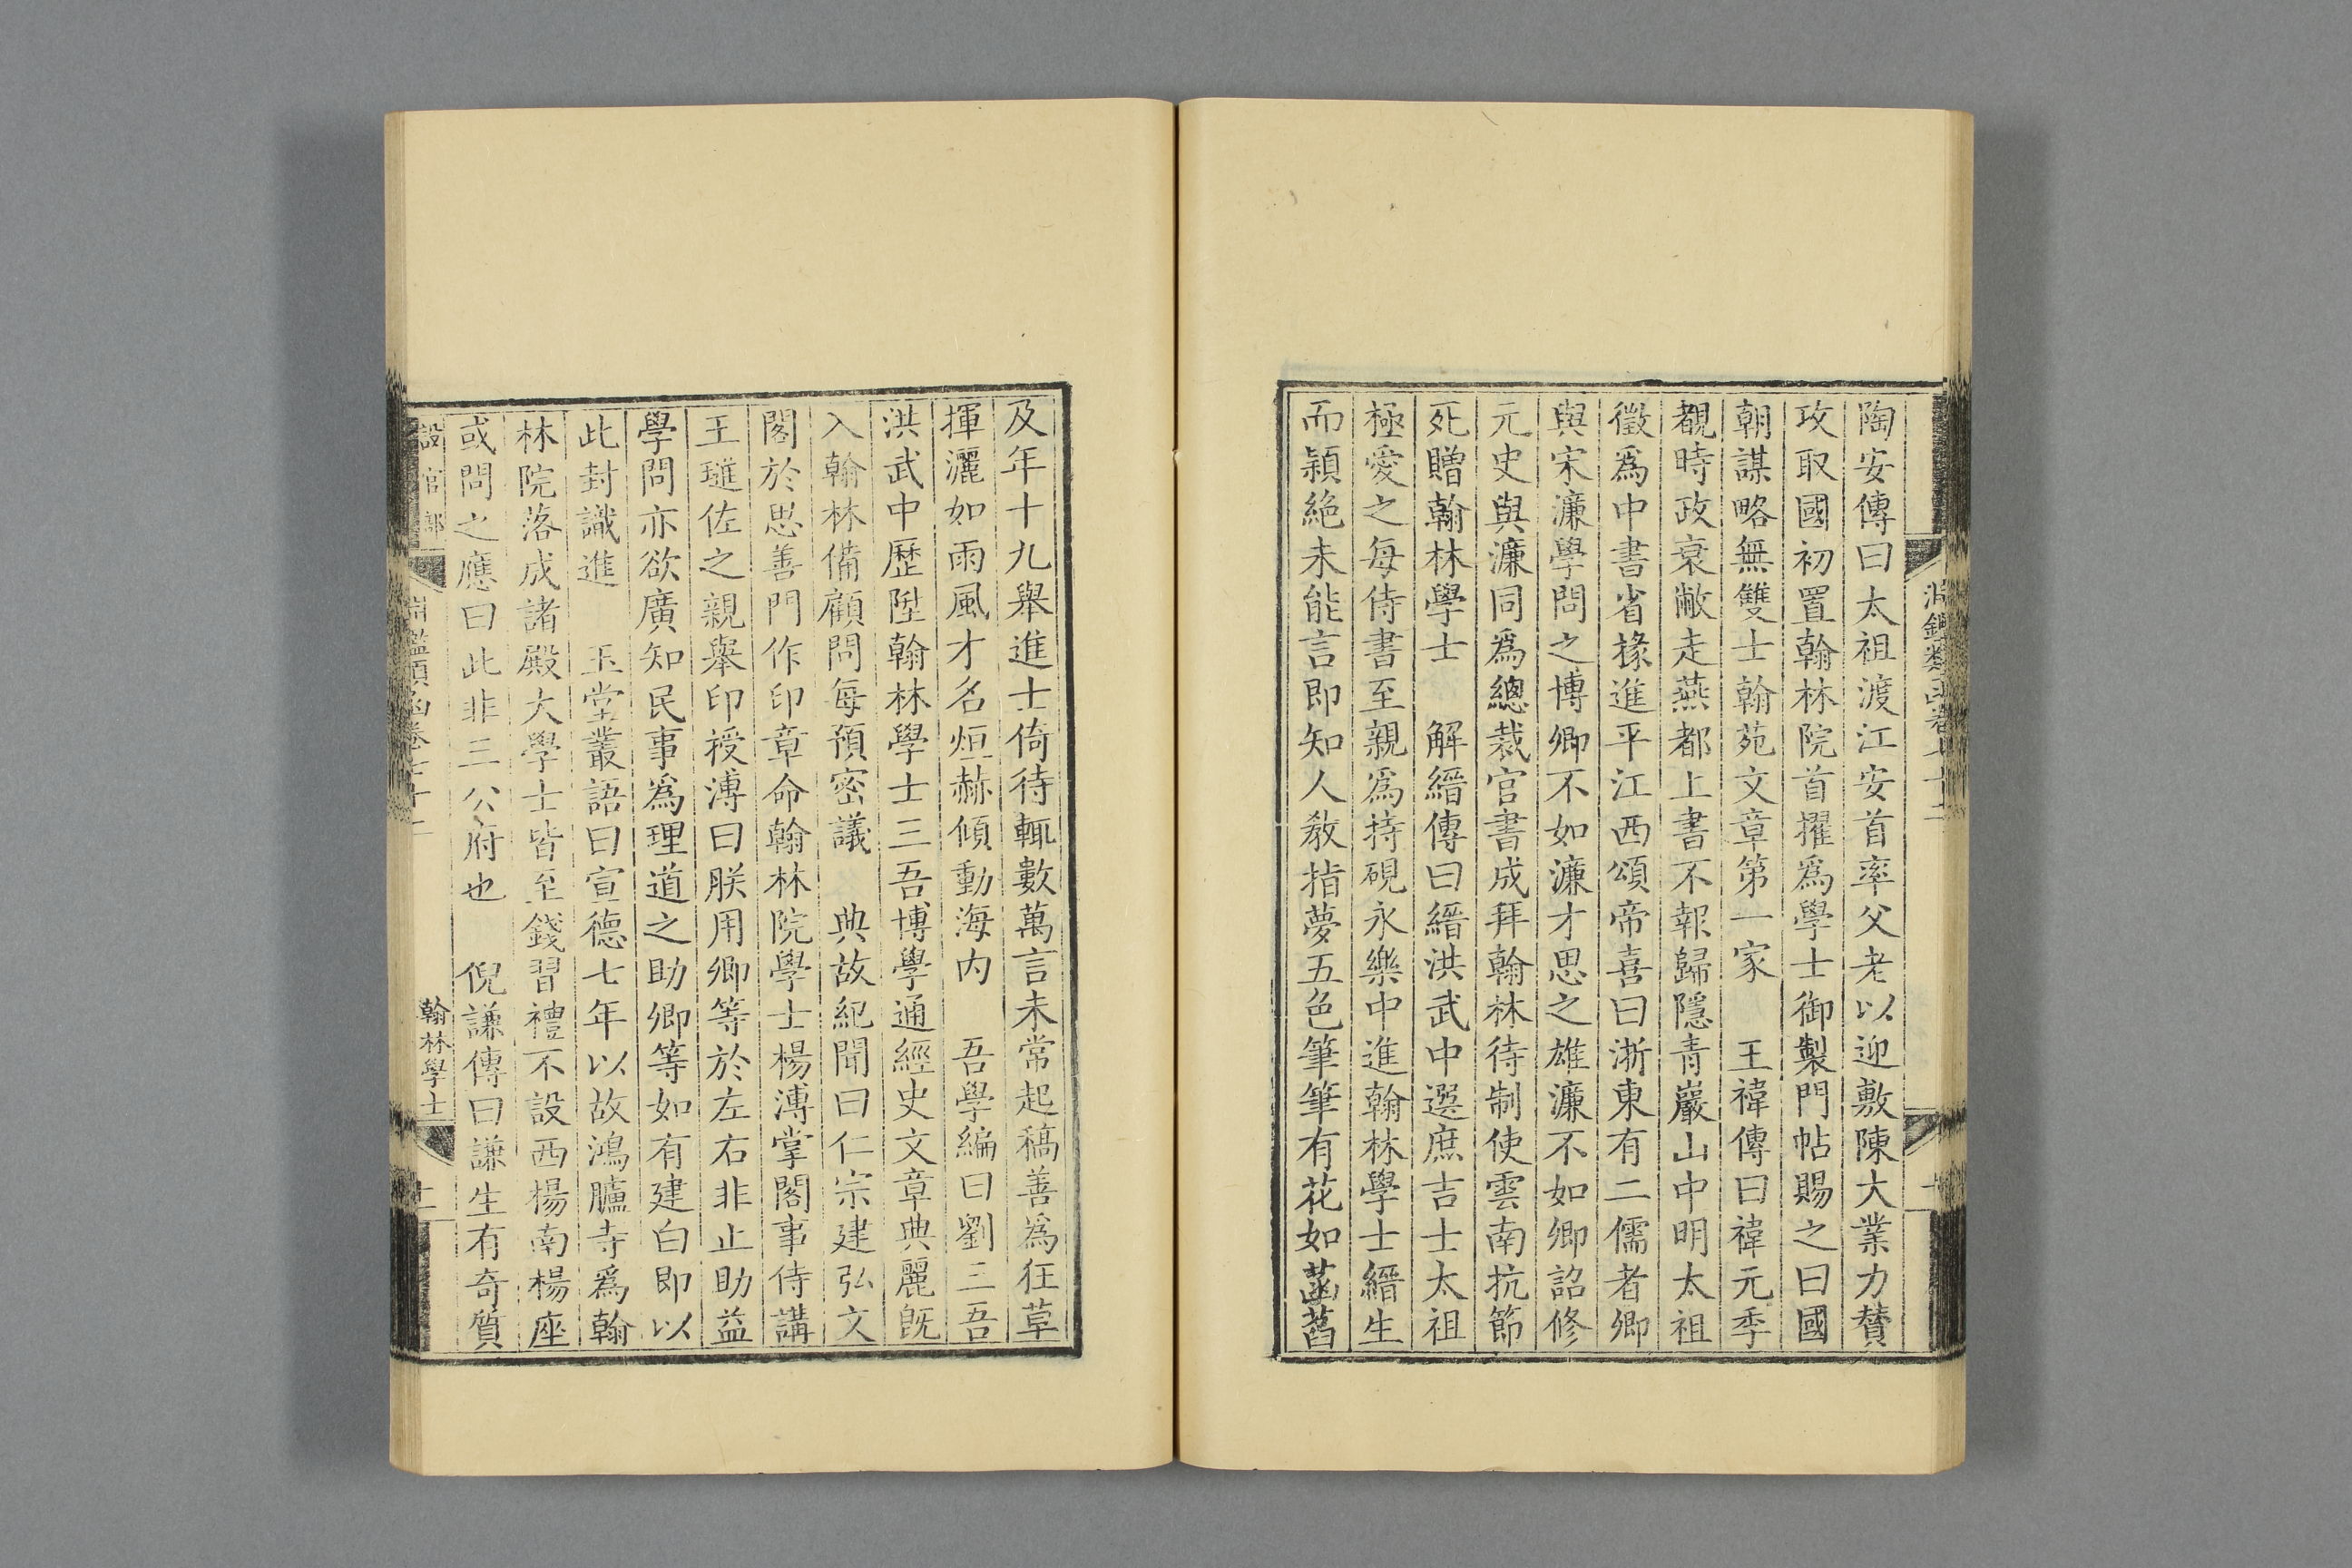 陶安傳曰太祖渡江安首率父老以迎敷陳大業力贊
攻取國初置翰林院首擢爲學士御製門帖賜之曰國
朝謀略無雙士翰苑文章第一家　王禕傳曰禕元季
覩時政衰敝走燕都上書不報歸隱青巖山中明太祖
徵爲中書省掾進平江西頌帝喜曰浙東有二儒者卿
與宋濂學問之博卿不如濂才思之雄濂不如卿詔修
元史與濂同爲總裁官書成拜翰林待制使雲南抗節
死贈翰林學士　解縉傳曰縉洪武中選庶吉士太祖
極愛之每侍書至親爲持硯永樂中進翰林學士縉生
而穎絶未能言即知人敎指夢五色筆筆有花如菡萏
及年十九舉進士倚待輒數萬言未常起稿善爲狂草
揮灑如雨風才名烜赫傾動海内　吾學編曰劉三吾
洪武中歷陞翰林學士三吾博學通經史文章典麗既
入翰林備顧問每預密議　典故紀聞曰仁宗建弘文
閣於思善門作印章命翰林院學士楊溥掌閣事侍講
王璡佐之親舉印授溥曰朕用卿等於左右非止助益
學問亦欲廣知民事爲理道之助卿等如有建白即以
此封識進　玉堂叢語曰宣德七年以故鴻臚寺爲翰
林院落成諸殿大學士皆至錢習禮不設西楊南楊座
或問之應曰此非三公府也　倪謙傳曰謙生有奇質
設官部
淵鑑類函卷七十二
翰林學士
十一